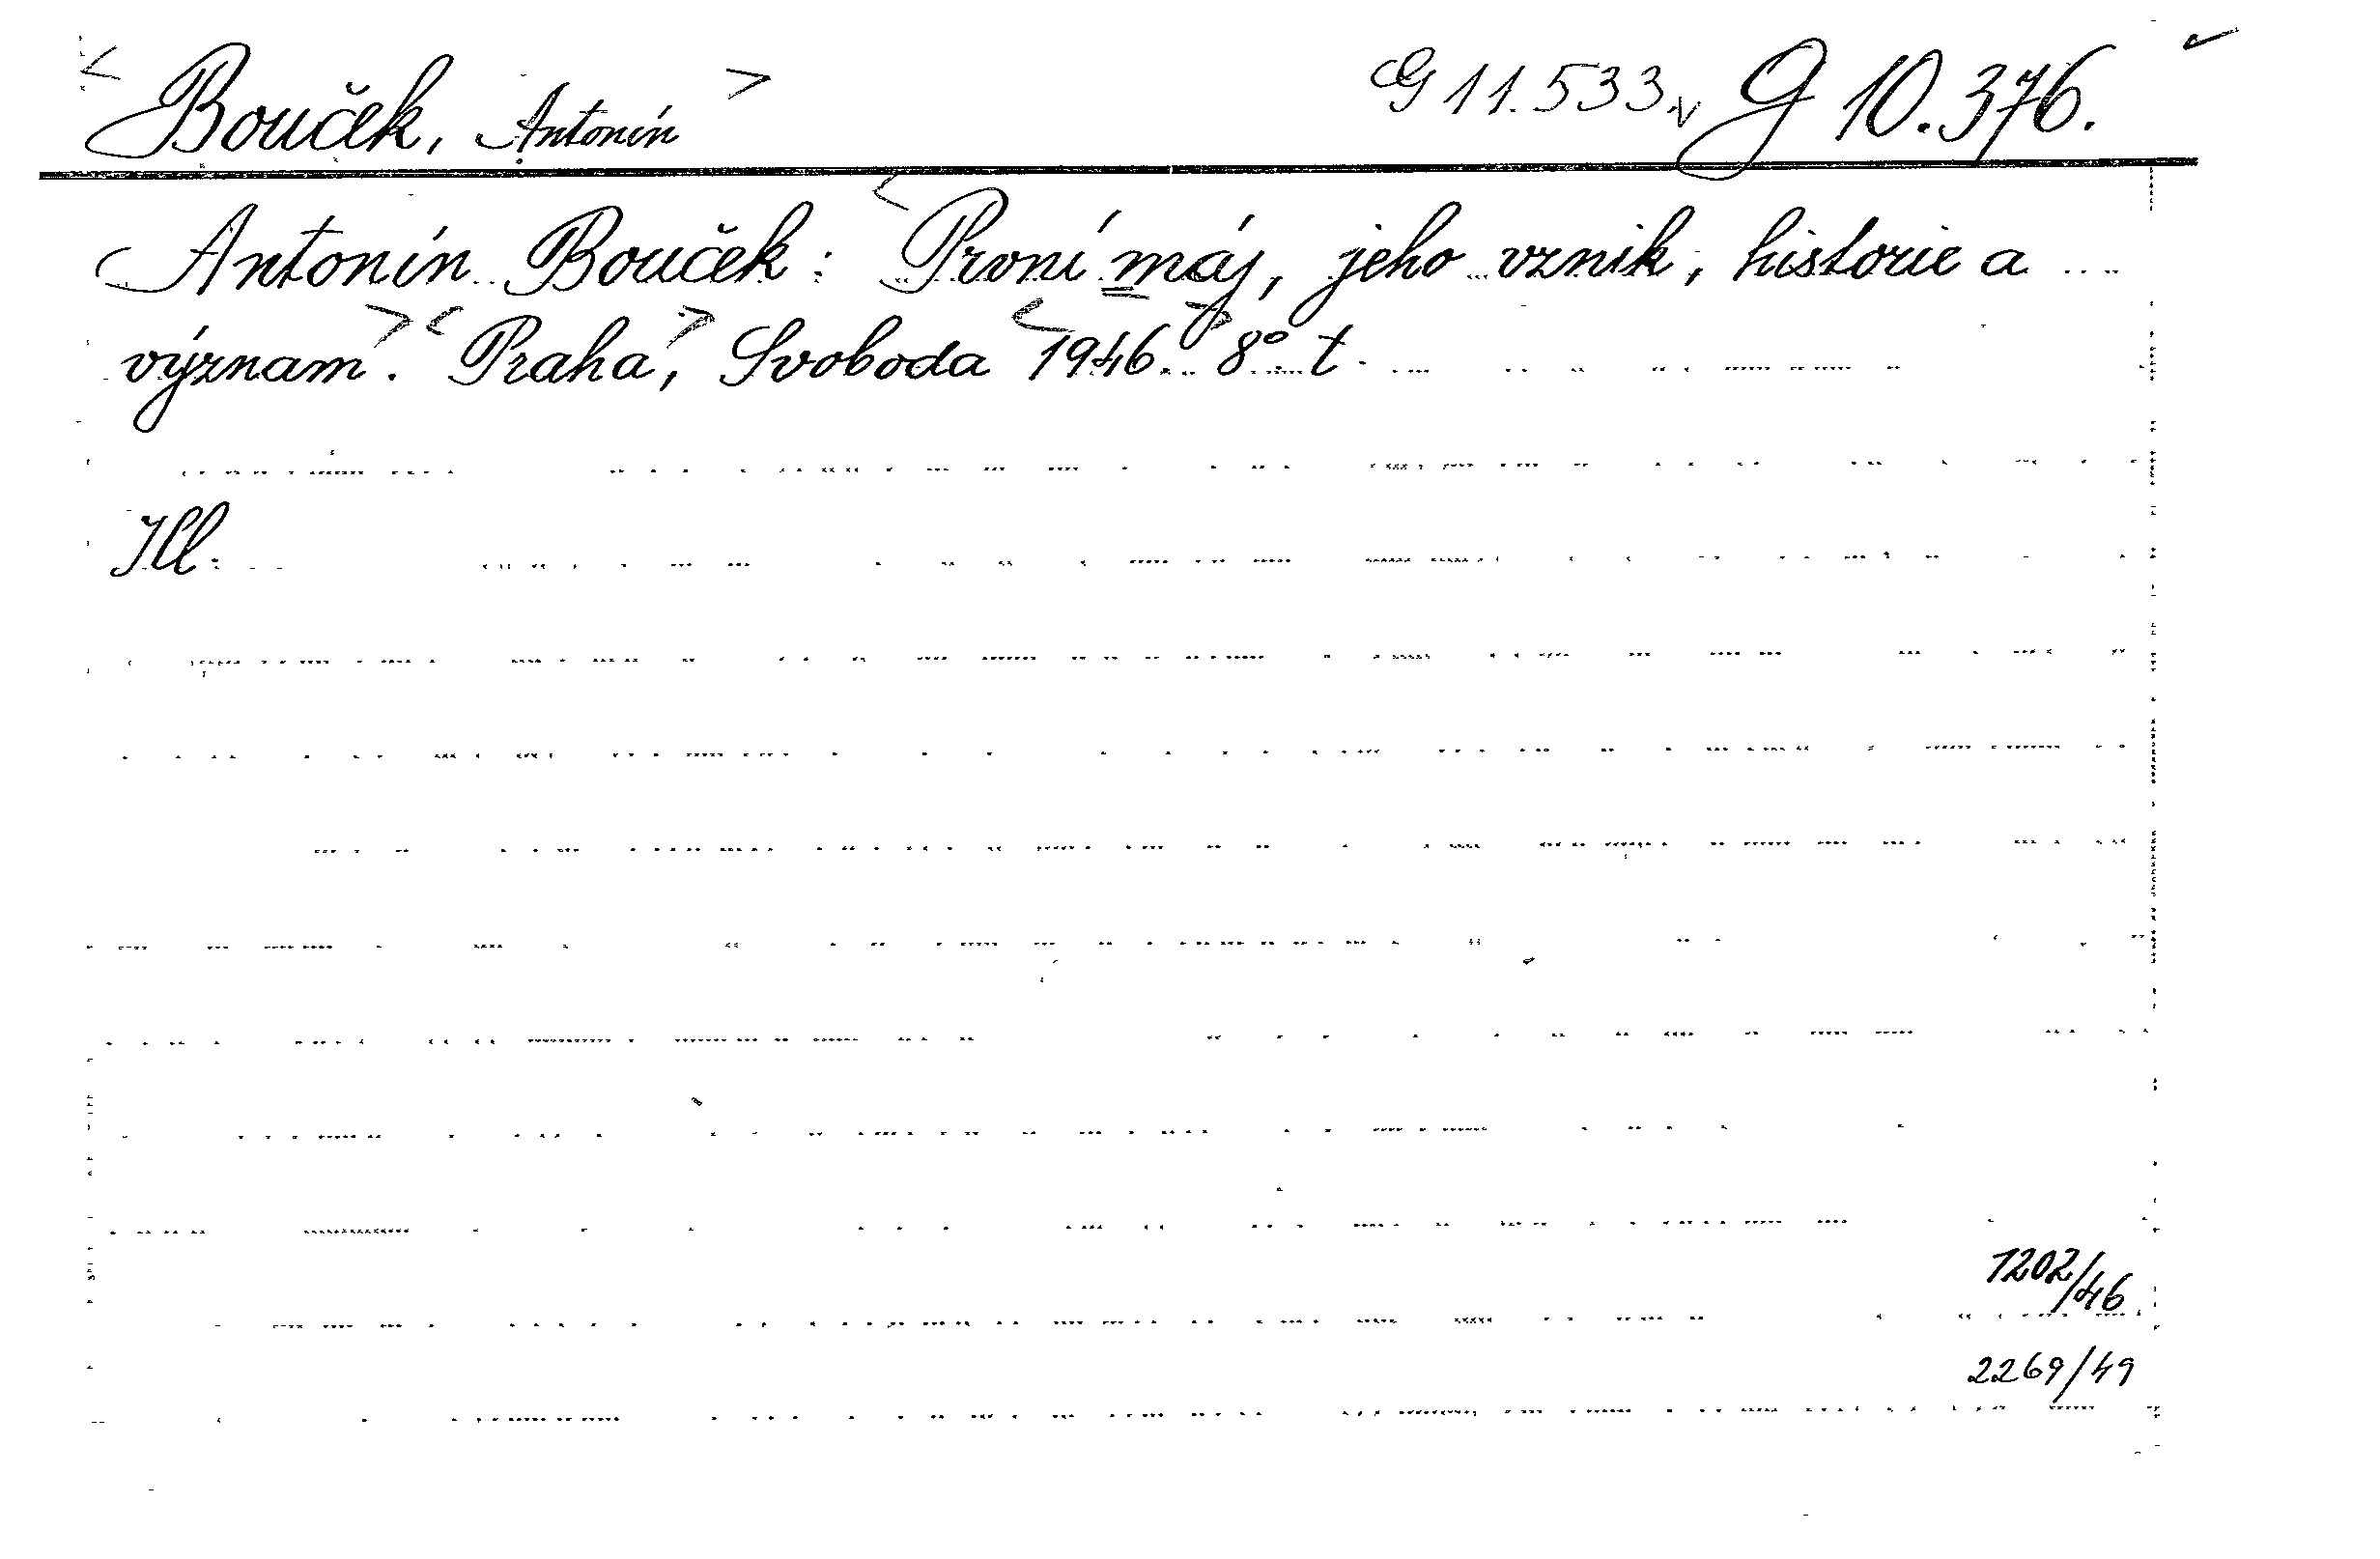 Bouček, Antonín G 11.533 G 10.376.
Antonín Bouček: První máj, jeho vznik, historie a
význam. Praha, Svoboda 1946. 8° t.
Ill.
1202/46
2269/49